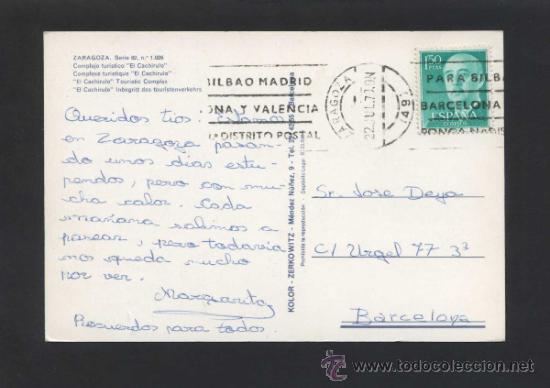 ZARAGOZA. Serie 60, n.º 1.026
Complejo turístico "El Cachirulo"
Complexe touristique "El Cachirulo"
"El Cachirulo" Touristic Complex
"El Cachirulo" Inbegriff des touristenverkehrs
BILBAO MADRID
ONA Y VALENCIA
DISTRITO POSTAL
ZARAGOZA
22.JUL.77
PARA BILB
BARCELONA
PONGA
1'50
PTAS
ESPAÑA
CORREOS
Queridos tios: Estamos
en Zaragoza pasan-
do unos días estu-
pendos, pero con mu-
cha calor. Cada
mañana salimos a
pasear, pero todavía
nos queda mucho
por ver.
Margarita
Recuerdos para todos.
KOLOR - ZERKOWITZ - Méndez Núñez, 9 - Tel. Barcelona
Prohibida la reproducción - Depósito Legal
Sr. Jose Deya
C/ Urgel 77 3º
Barcelona
todocoleccion.net